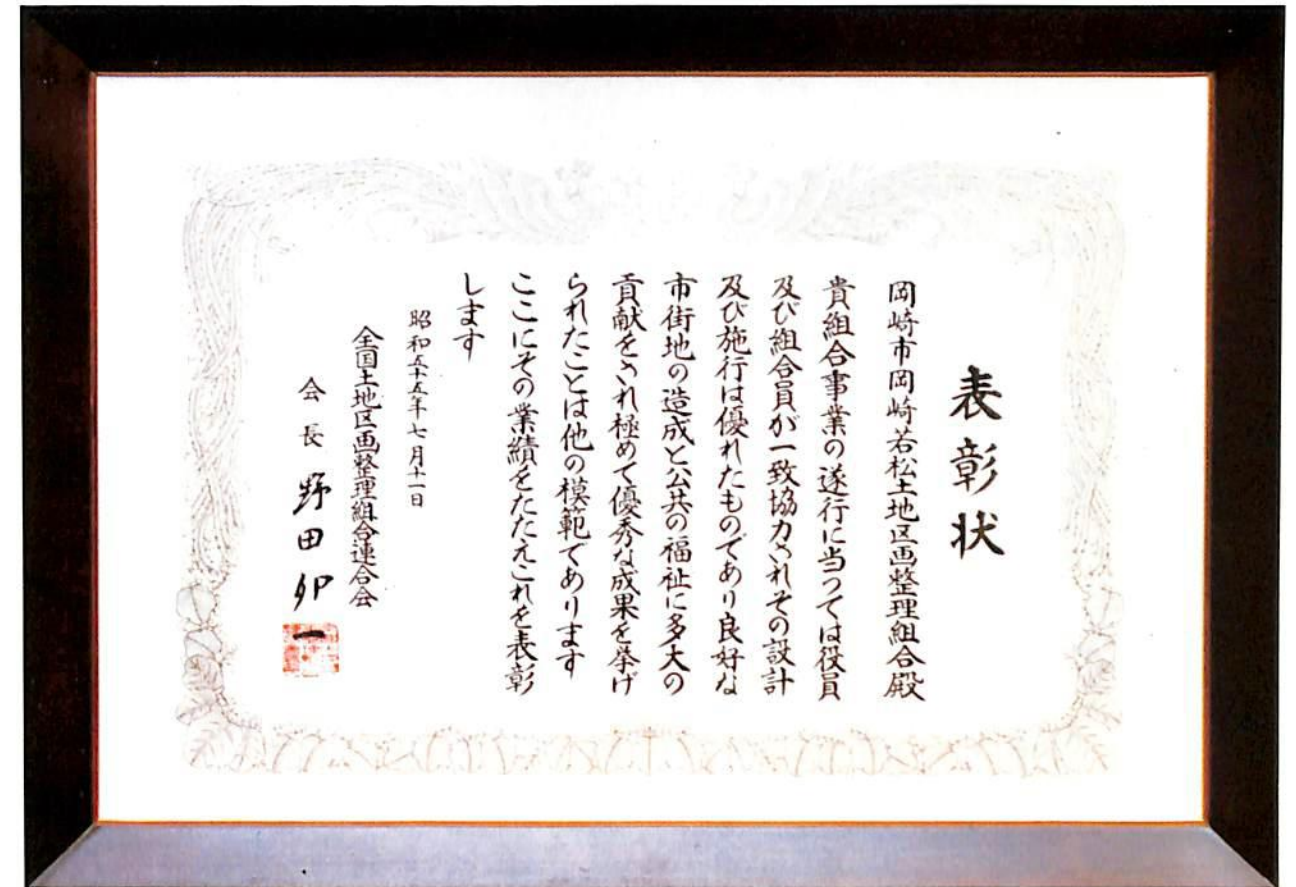 表彰状
岡崎市岡崎若松土地区画整理組合殿
貴組合事業の遂行に当つては役員
及び組合員が一致協力されその設計
及び施行は優れたものであり良好な
市街地の造成と公共の福祉に多大の
貢献をされ極めて優秀な成果を挙げ
られたことは他の模範であります
ここにその業績をたたえこれを表彰
します
昭和五十五年七月十一日
全国土地区画整理組合連合会
会長 野田卯一